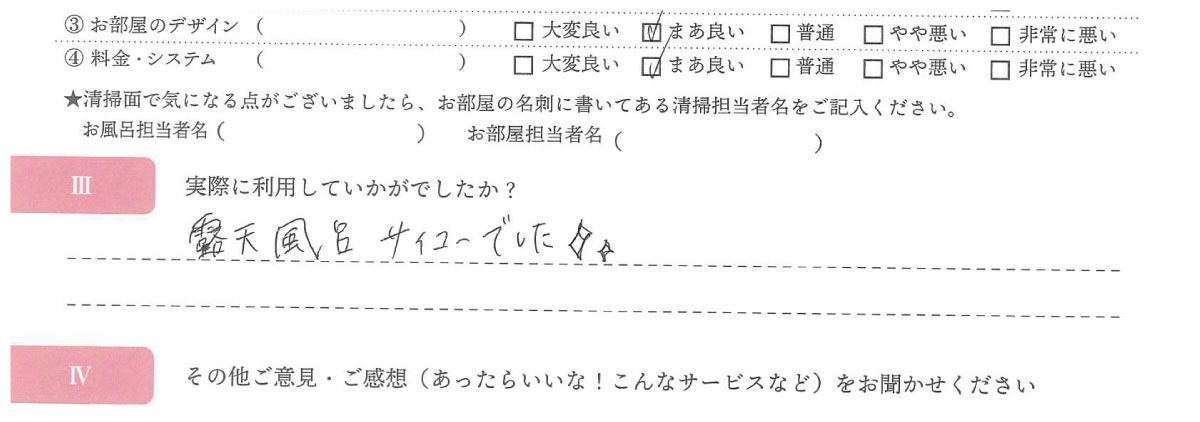 ③ お部屋のデザイン （　　　　　　　　） □ 大変良い ☑ まあ良い □ 普通 □ やや悪い □ 非常に悪い
④ 料金・システム （　　　　　　　　） □ 大変良い ☑ まあ良い □ 普通 □ やや悪い □ 非常に悪い
★清掃面で気になる点がございましたら、お部屋の名刺に書いてある清掃担当者名をご記入ください。
お風呂担当者名（　　　　　　　　） お部屋担当者名（　　　　　　　　）
Ⅲ 実際に利用していかがでしたか？
露天風呂 サイコーでした
Ⅳ その他ご意見・ご感想（あったらいいな！こんなサービスなど）をお聞かせください